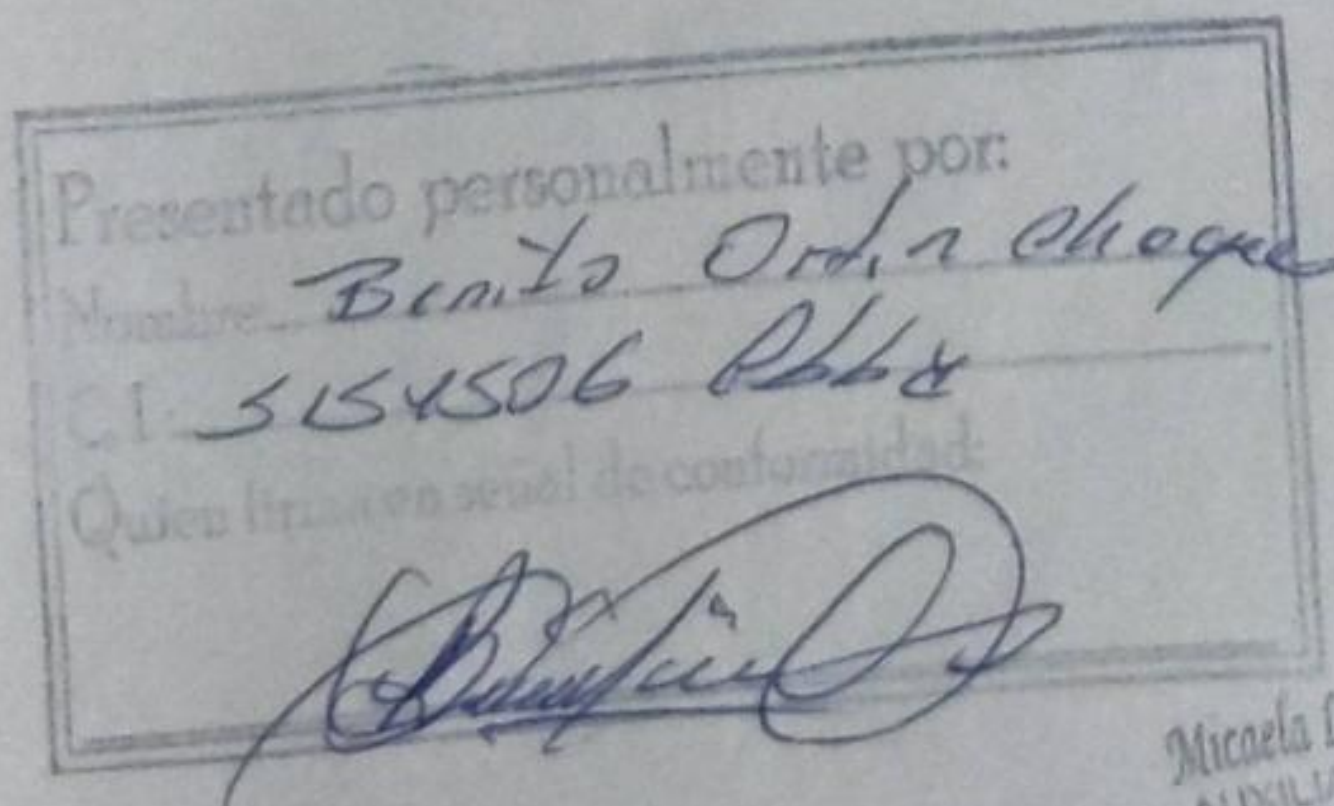 Presentado personalmente por:
Nombre Benito Ordin Choque
C.I. 5154506 Cbba
Quien firma en señal de conformidad:
Micaela
AUXILI